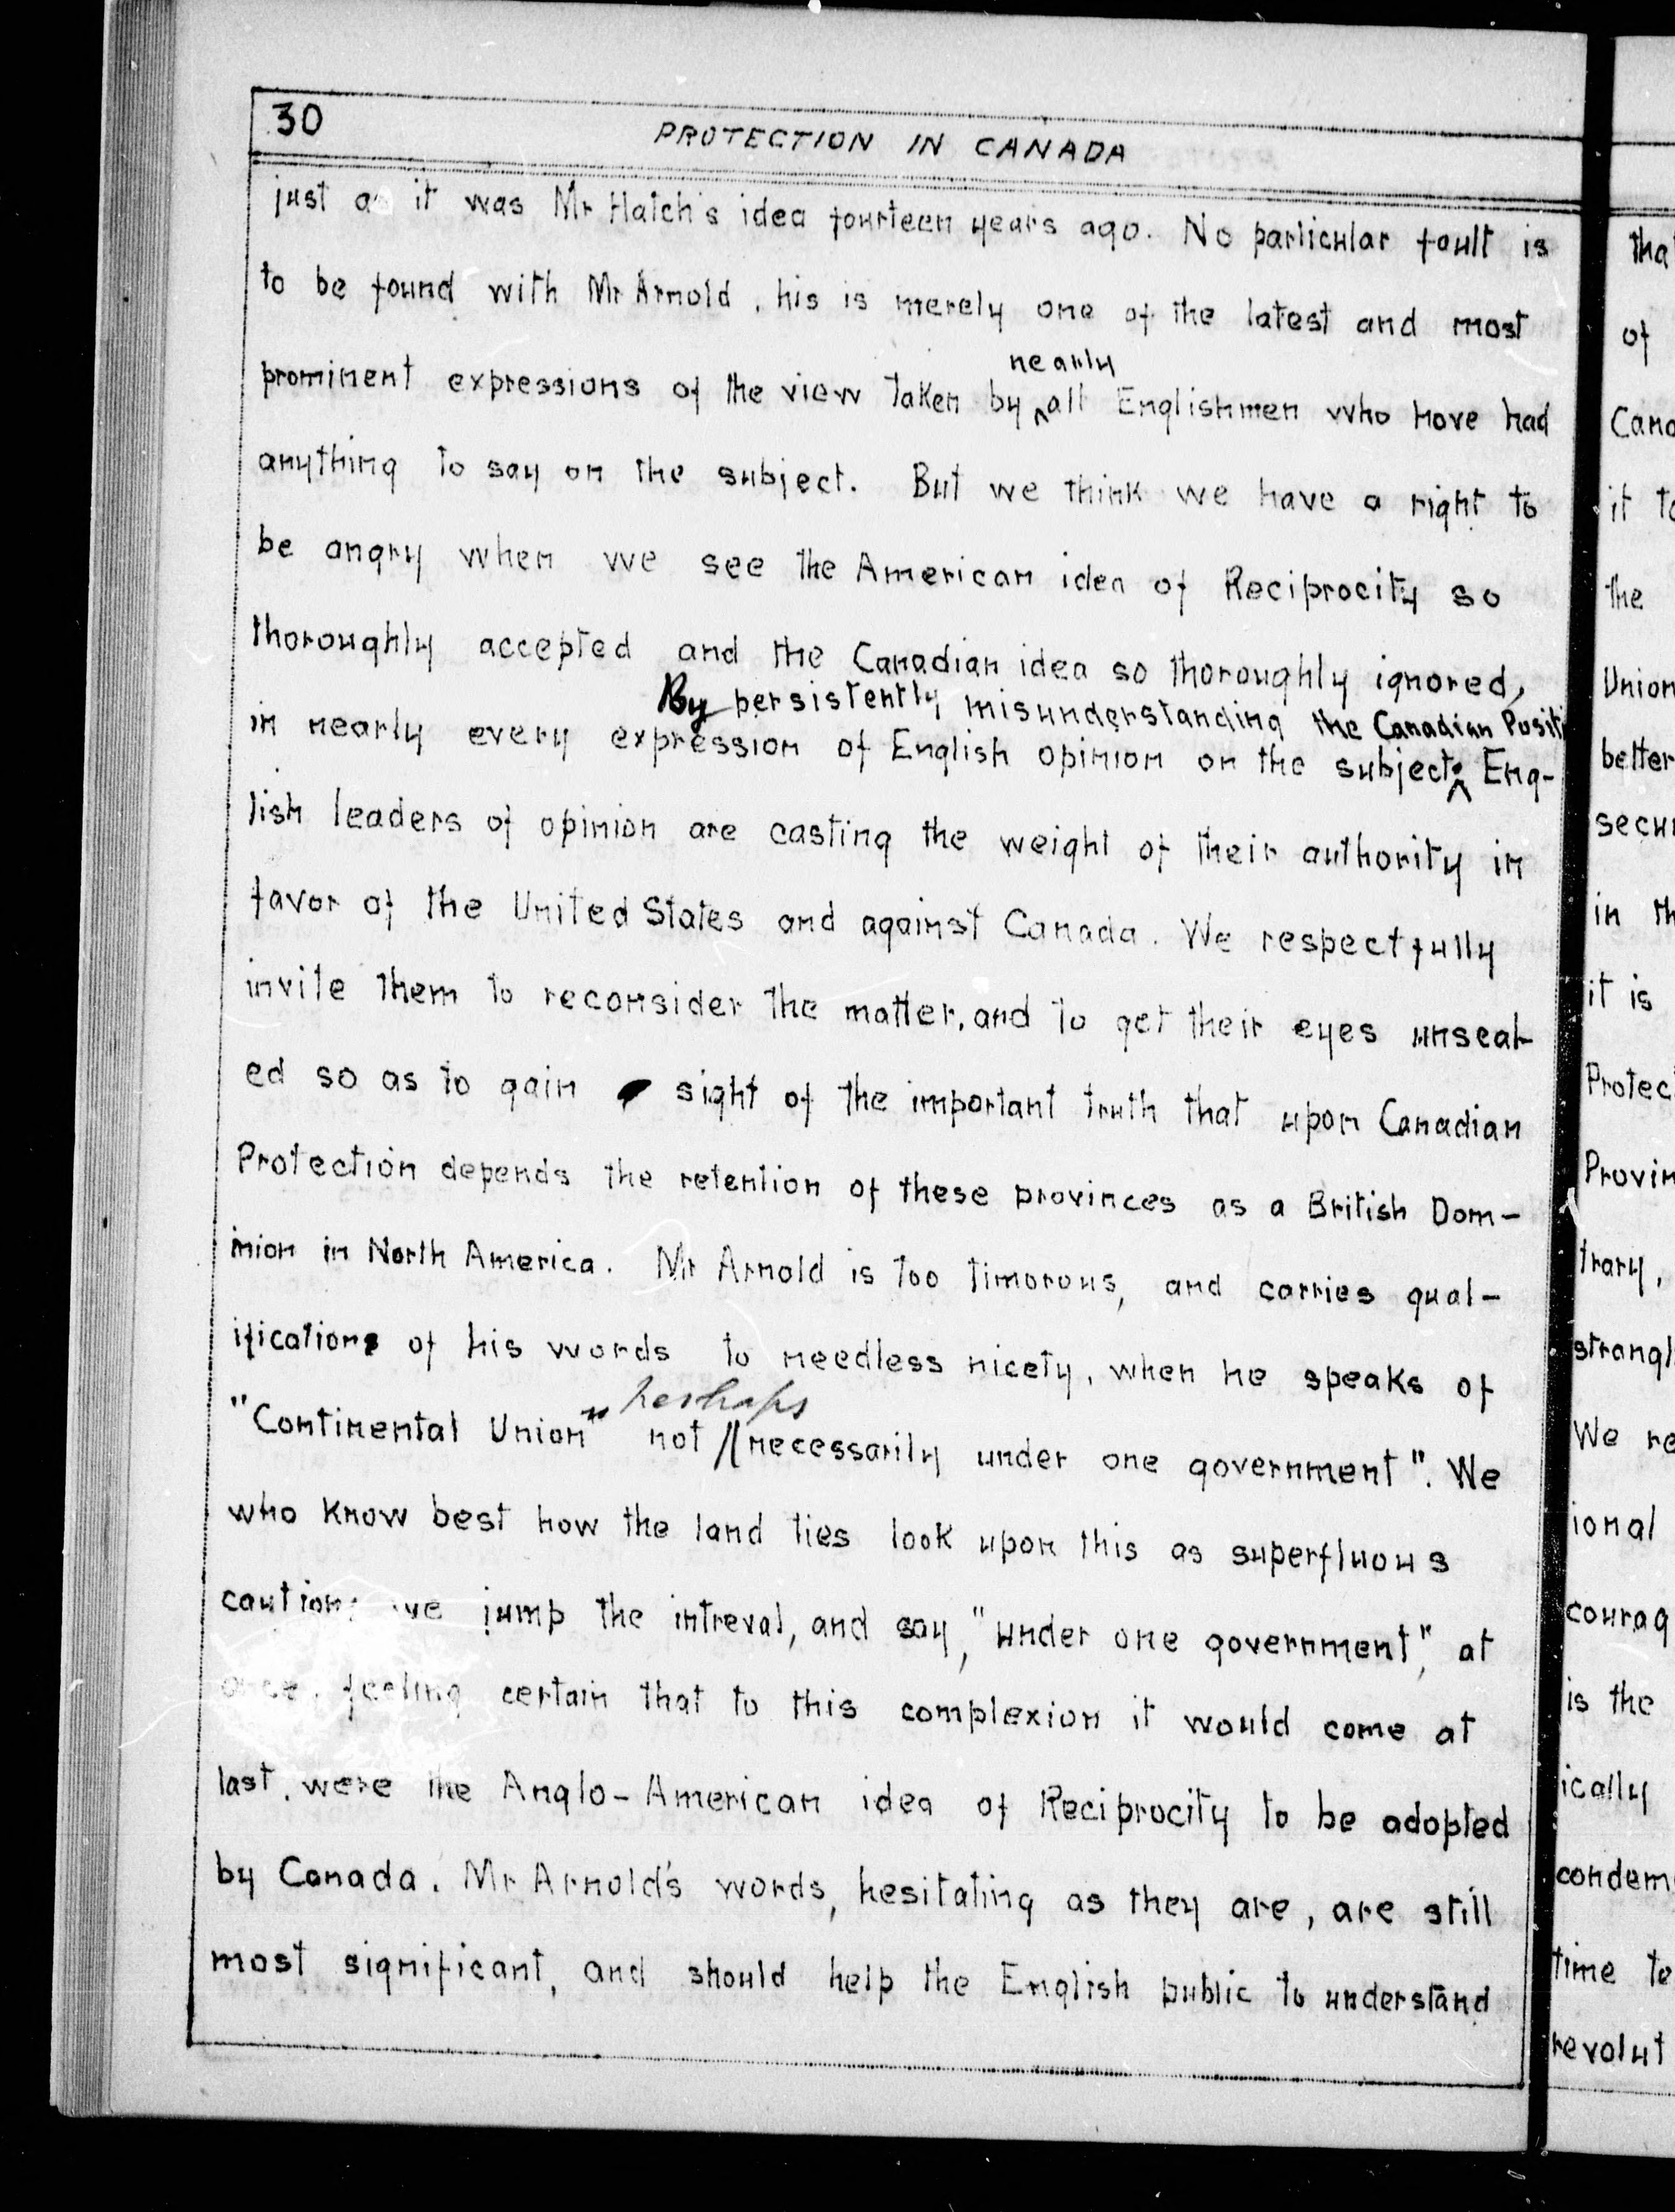 30
PROTECTION IN CANADA
just as it was Mr Hatch's idea fourteen years ago. No particular fault is
to be found with Mr Arnold, his is merely one of the latest and most
nearly
prominent expressions of the view taken by ^ all Englishmen who have had
anything to say on the subject. But we think we have a right to
be angry when we see the American idea of Reciprocity so
thoroughly accepted and the Canadian idea so thoroughly ignored,
By persistently misunderstanding the Canadian Positi
in nearly every expression of English opinion on the subject. ^ Eng-
lish leaders of opinion are casting the weight of their authority in
favor of the United States and against Canada. We respectfully
invite them to reconsider the matter, and to get their eyes unseal-
ed so as to gain sight of the important truth that upon Canadian
Protection depends the retention of these provinces as a British Dom-
inion in North America. Mr Arnold is too timorous, and carries qual-
ifications of his words to needless nicety, when he speaks of
perhaps
"Continental Union" not necessarily under one government". We
who know best how the land lies look upon this as superfluous
caution; we jump the intreval, and say, "under one government", at
once, feeling certain that to this complexion it would come at
last, were the Anglo-American idea of Reciprocity to be adopted
by Canada. Mr Arnold's words, hesitating as they are, are still
most significant, and should help the English public to understand
tha
of
Cana
it to
the
Union
better
secu
in th
it is
Protec
Provin
trary,
strangl
We re
ional
courag
is the
ically
condem
time te
revolut